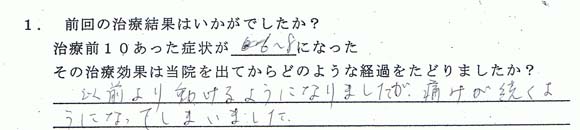 1. 前回の治療結果はいかがでしたか?
治療前10あった症状が 6~8 になった
その治療効果は当院を出てからどのような経過をたどりましたか?
以前より動けるようになりましたが、痛みが続くよ
うになってしまいました。